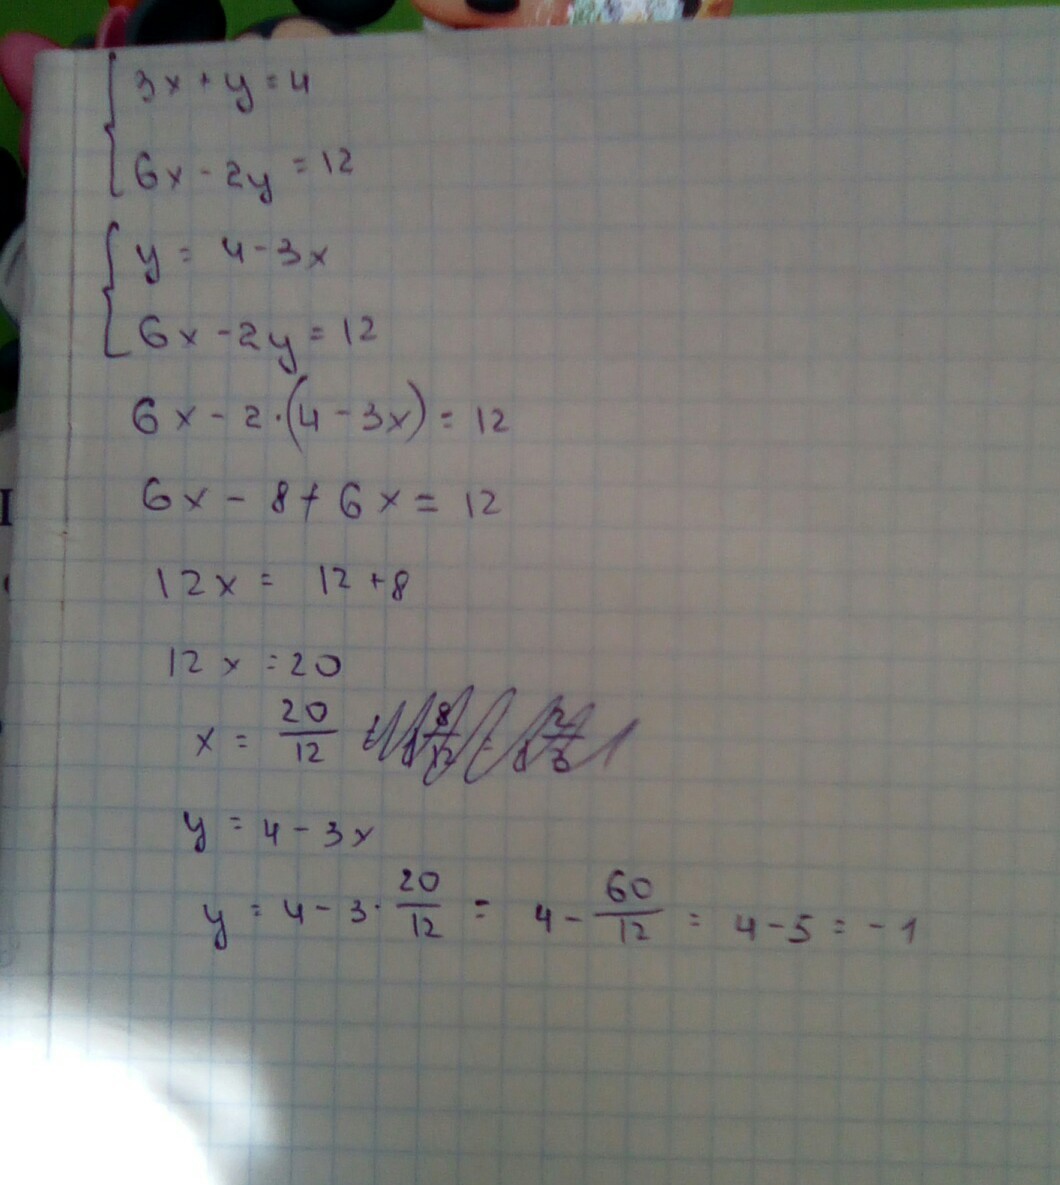 3x + y = 4
6x - 2y = 12
y = 4 - 3x
6x - 2y = 12
6x - 2·(4 - 3x) = 12
6x - 8 + 6x = 12
12x = 12 + 8
12x = 20
x = 20/12
y = 4 - 3x
y = 4 - 3·20/12 = 4 - 60/12 = 4 - 5 = -1